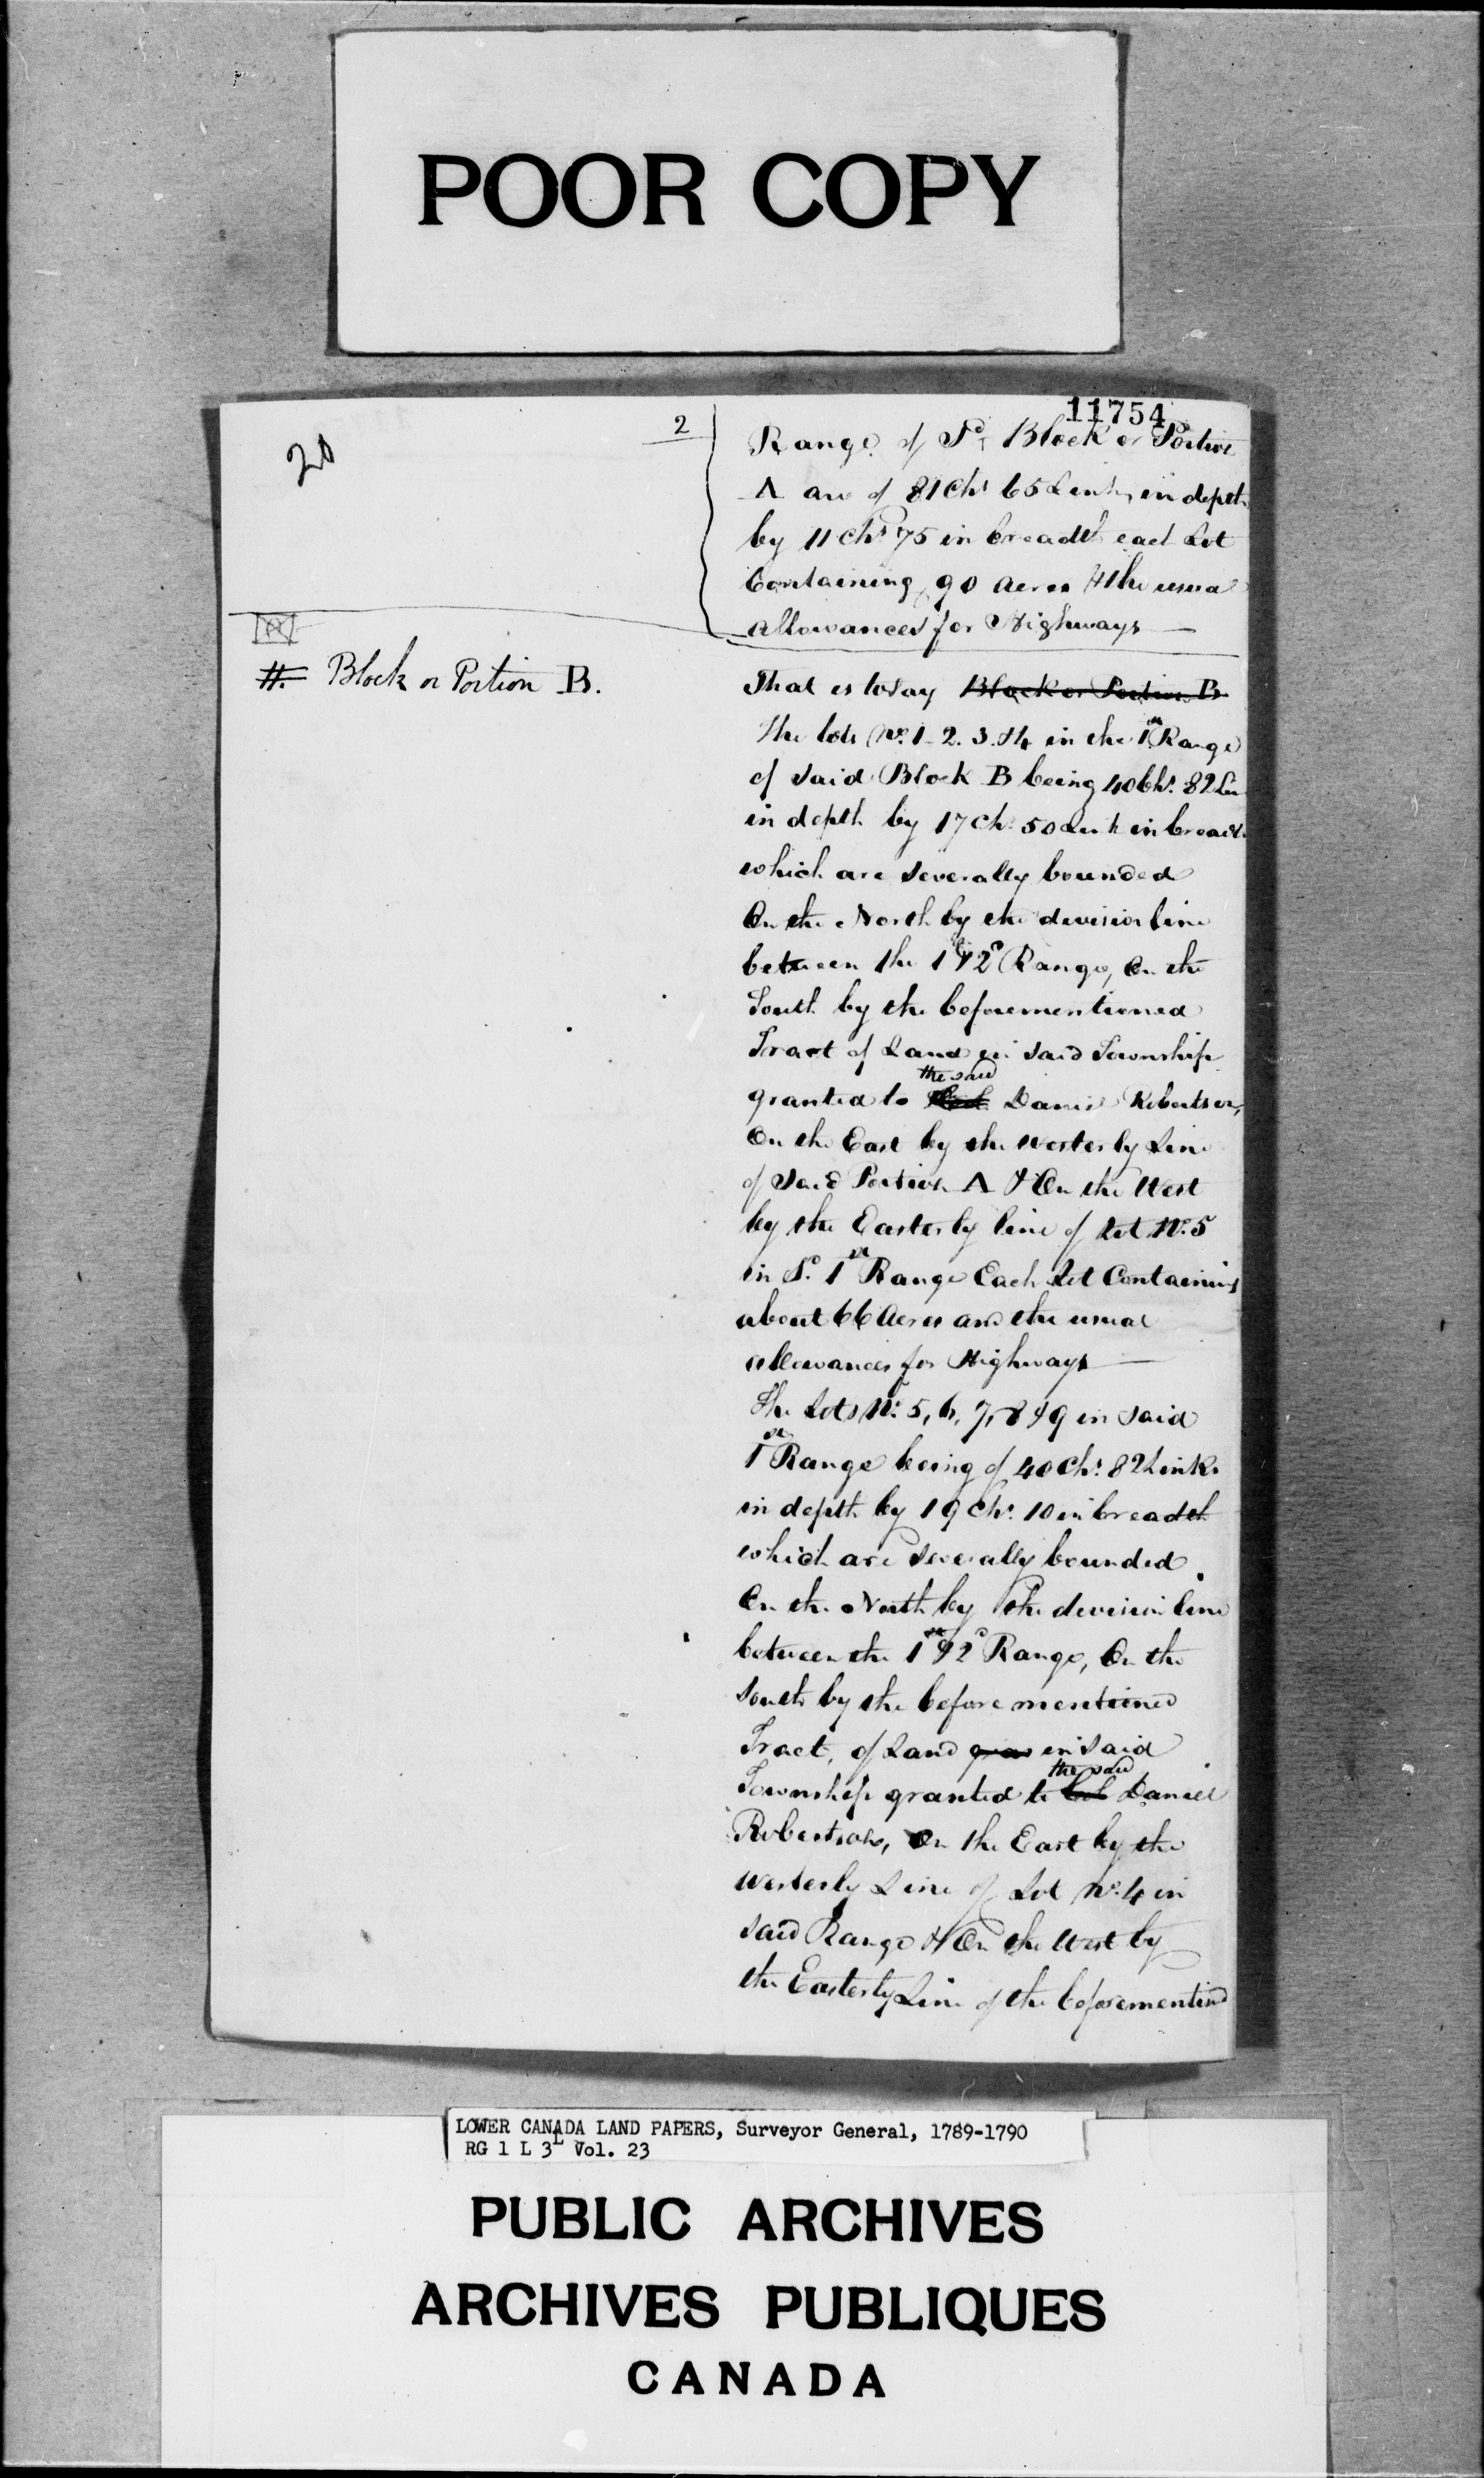 POOR COPY
11754
2
Range of Sd Block or Portion
A are of 81 Chs 65 Links in depth
by 11 Chs 75 in breadth each Lot
Containing 90 Acres & the usual
allowances for Highways —
#. Block or Portion B.
That is to say Block or Portion B
The lots No. 1. 2. 3. & 4 in the 1st Range
of said Block B being 40 Chs. 82 Lin
in depth by 17 Chs. 50 Link in breadth
which are severally bounded
On the North by the devision line
between the 1st & 2d Range, On the
South by the beforementioned
Tract of Land in said Township
the said
granted to Col. Daniel Robertson,
On the East by the Westerly Line
of Said Portion A & On the West
by the Easterly line of Lot No. 5
in Sd. 1st Range Each Lot Containing
about 66 Acres and the usual
allowances for Highways —
The Lots No. 5, 6, 7, 8 & 9 in said
1st Range being of 40 Chs. 82 Links
in depth by 19 Chs. 10 in breadth
which are severally bounded
On the North by the devision line
between the 1st & 2d Range, On the
South by the before mentioned
Tract, of Land gran in Said
the said
Township granted to Col Daniel
Robertson, On the East by the
Westerly Line of Lot No. 4 in
said Range & On the West by
the Easterly Line of the beforementiond
LOWER CANADA LAND PAPERS, Surveyor General, 1789-1790
RG 1 L 3L Vol. 23
PUBLIC ARCHIVES
ARCHIVES PUBLIQUES
CANADA